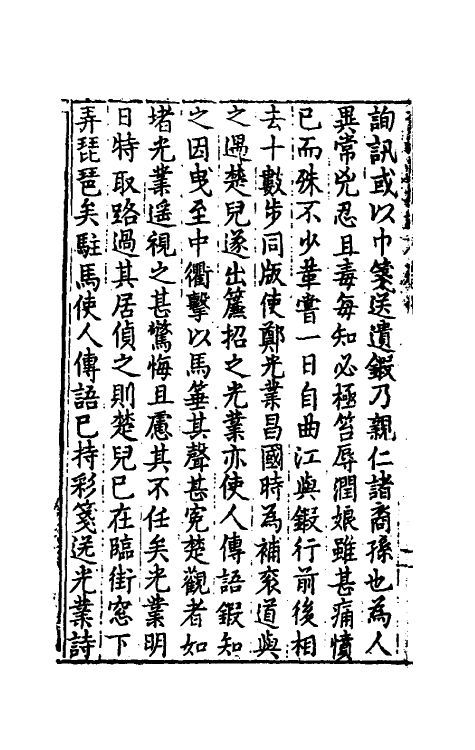 詢訊或以巾箋送遺鍜乃親仁諸裔孫也為人
異常兇忍且毒每知必極笞辱潤娘雖甚痛憤
已而殊不少革嘗一日自曲江與鍜行前後相
去十數步同版使鄭光業昌國時為補衮道與
之遇楚兒遂出簾招之光業亦使人傳語鍜知
之因曳至中衢擊以馬箠其聲甚寃楚觀者如
堵光業遥視之甚驚悔且慮其不任矣光業明
日特取路過其居偵之則楚兒已在臨街窓下
弄琵琶矣駐馬使人傳語已持彩箋送光業詩